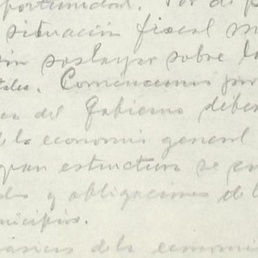 oportunidad. Por de p
situación fiscal m
sin soslayar sobre lo
tales. Comencemos por
del Gobierno deber
de la economía general
gran estructura se en
y obligaciones de l
nicipios.
de la economí